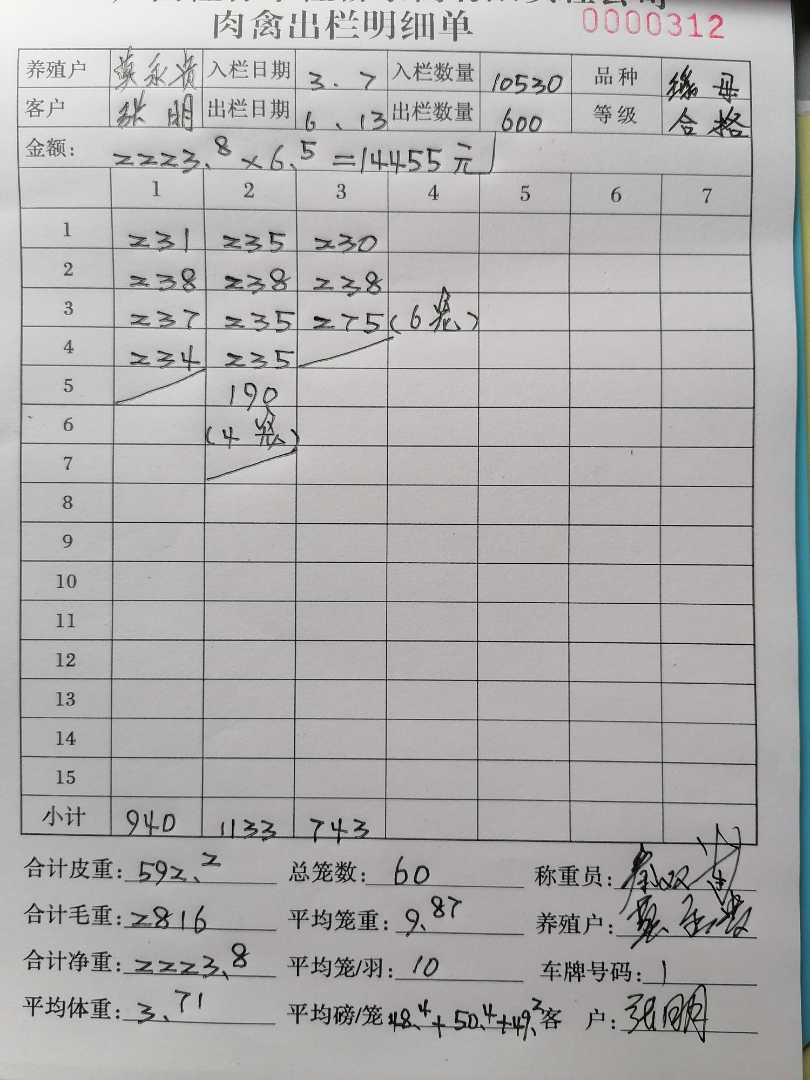 肉禽出栏明细单 0000312
养殖户 入栏日期 3.7 入栏数量 10530 品种
客户 张明 出栏日期 6.13 出栏数量 600 等级 合格
金额: 2223.8×6.5=14455元
1 2 3 4 5 6 7
1 231 235 230
2 238 238 238
3 237 235 275(6笼)
4 234 235
5 190
6 (4笼)
7
8
9
10
11
12
13
14
15
小计 940 1133 743
合计皮重: 592.2 总笼数: 60 称重员:
合计毛重: 2816 平均笼重: 9.87 养殖户:
合计净重: 2223.8 平均笼/羽: 10 车牌号码: 1
平均体重: 3.71 平均磅/笼 48.4+50.4+49.2 客 户: 张明